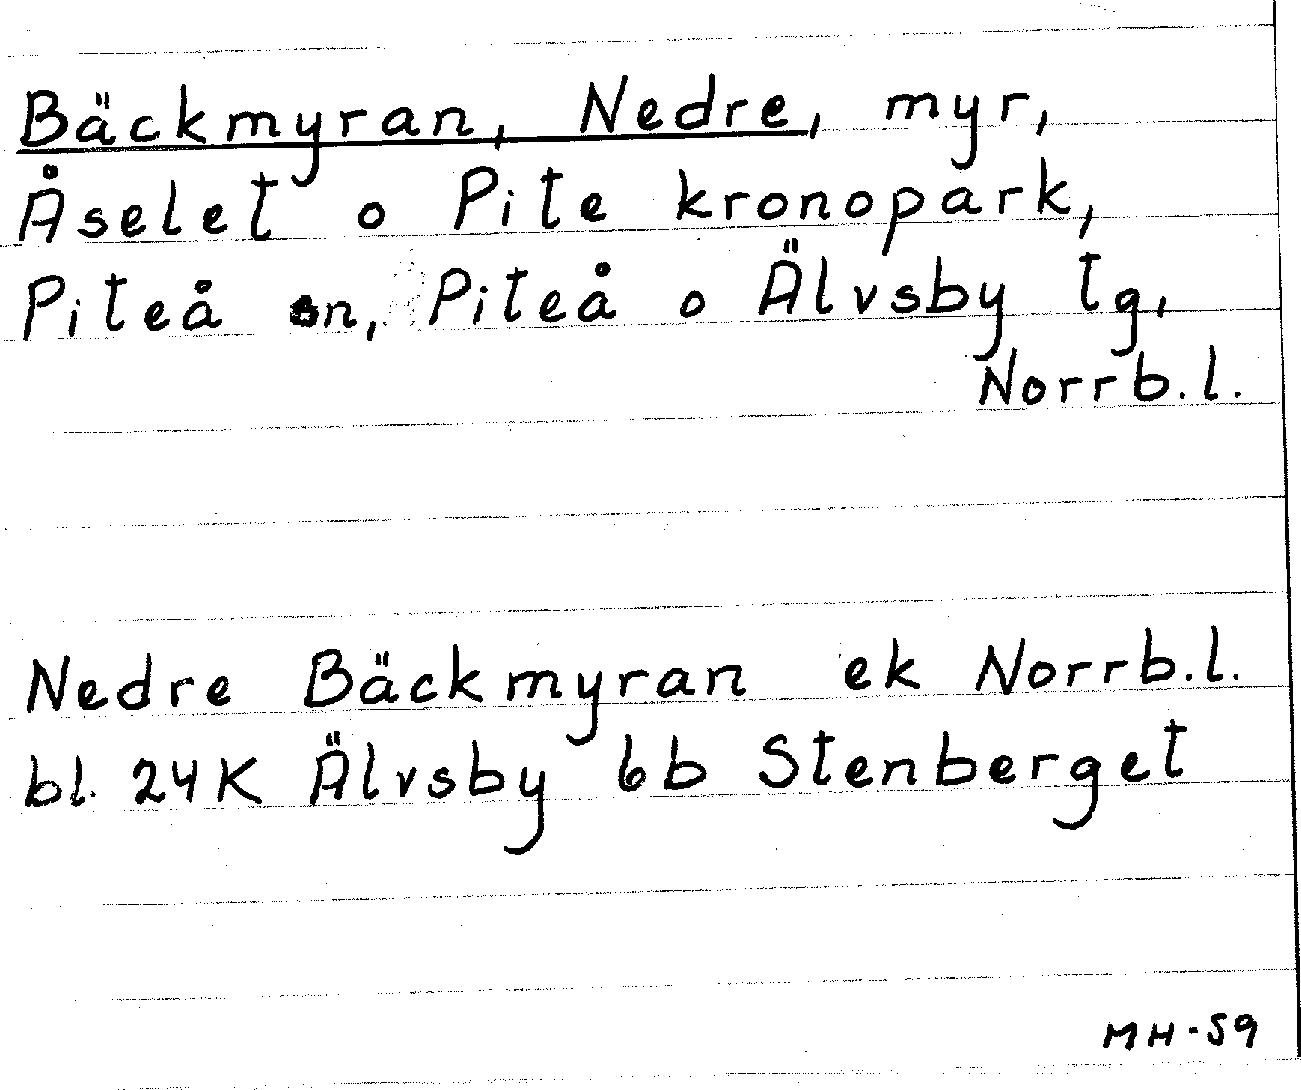 Bäckmyran, Nedre, myr,
Åselet o Pite kronopark,
Piteå sn, Piteå o Älvsby tg,
Norrb.l.
Nedre Bäckmyran ek Norrb.l.
bl. 24K Älvsby 6b Stenberget
MH-59